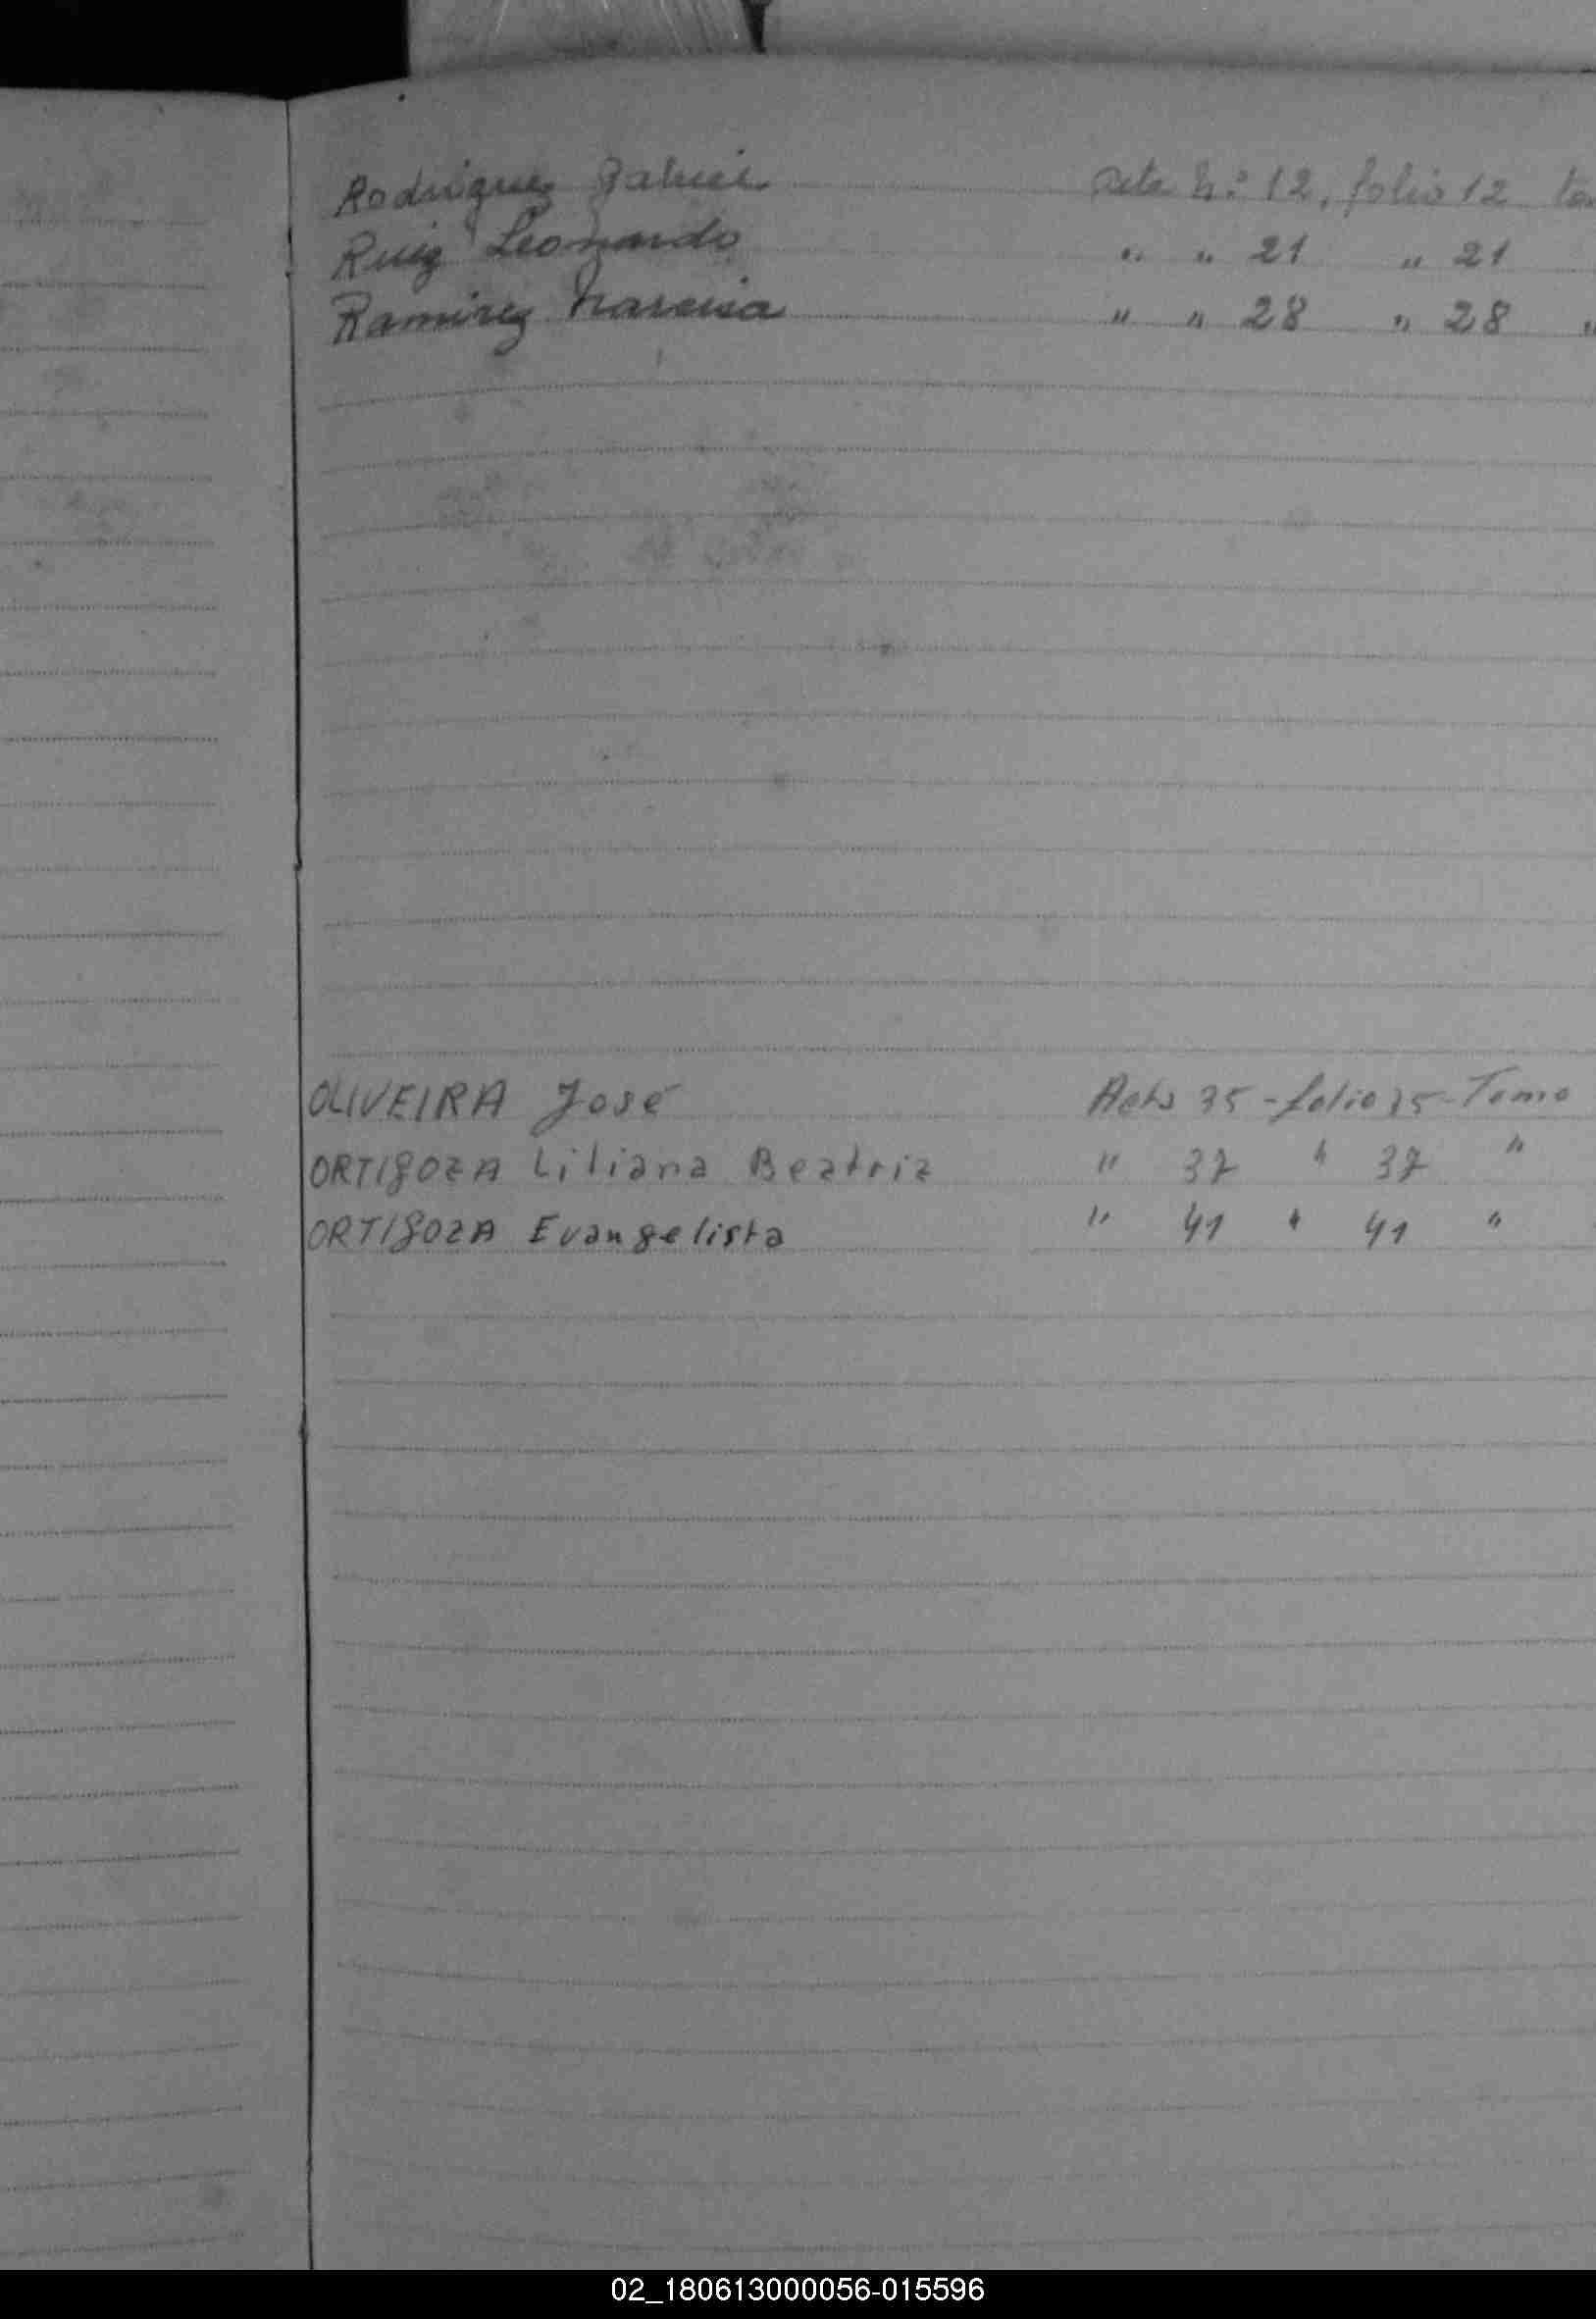 Rodriguez Gabriel Acta N.º 12, folio 12 to
Ruiz Leonardo " " 21 " 21
Ramirez Narcisa " " 28 " 28 "
OLIVEIRA José Acta 35 - folio 35 - Tomo
ORTIGOZA Liliana Beatriz " 37 " 37 "
ORTIGOZA Evangelista " 41 " 41 "
02_180613000056-015596